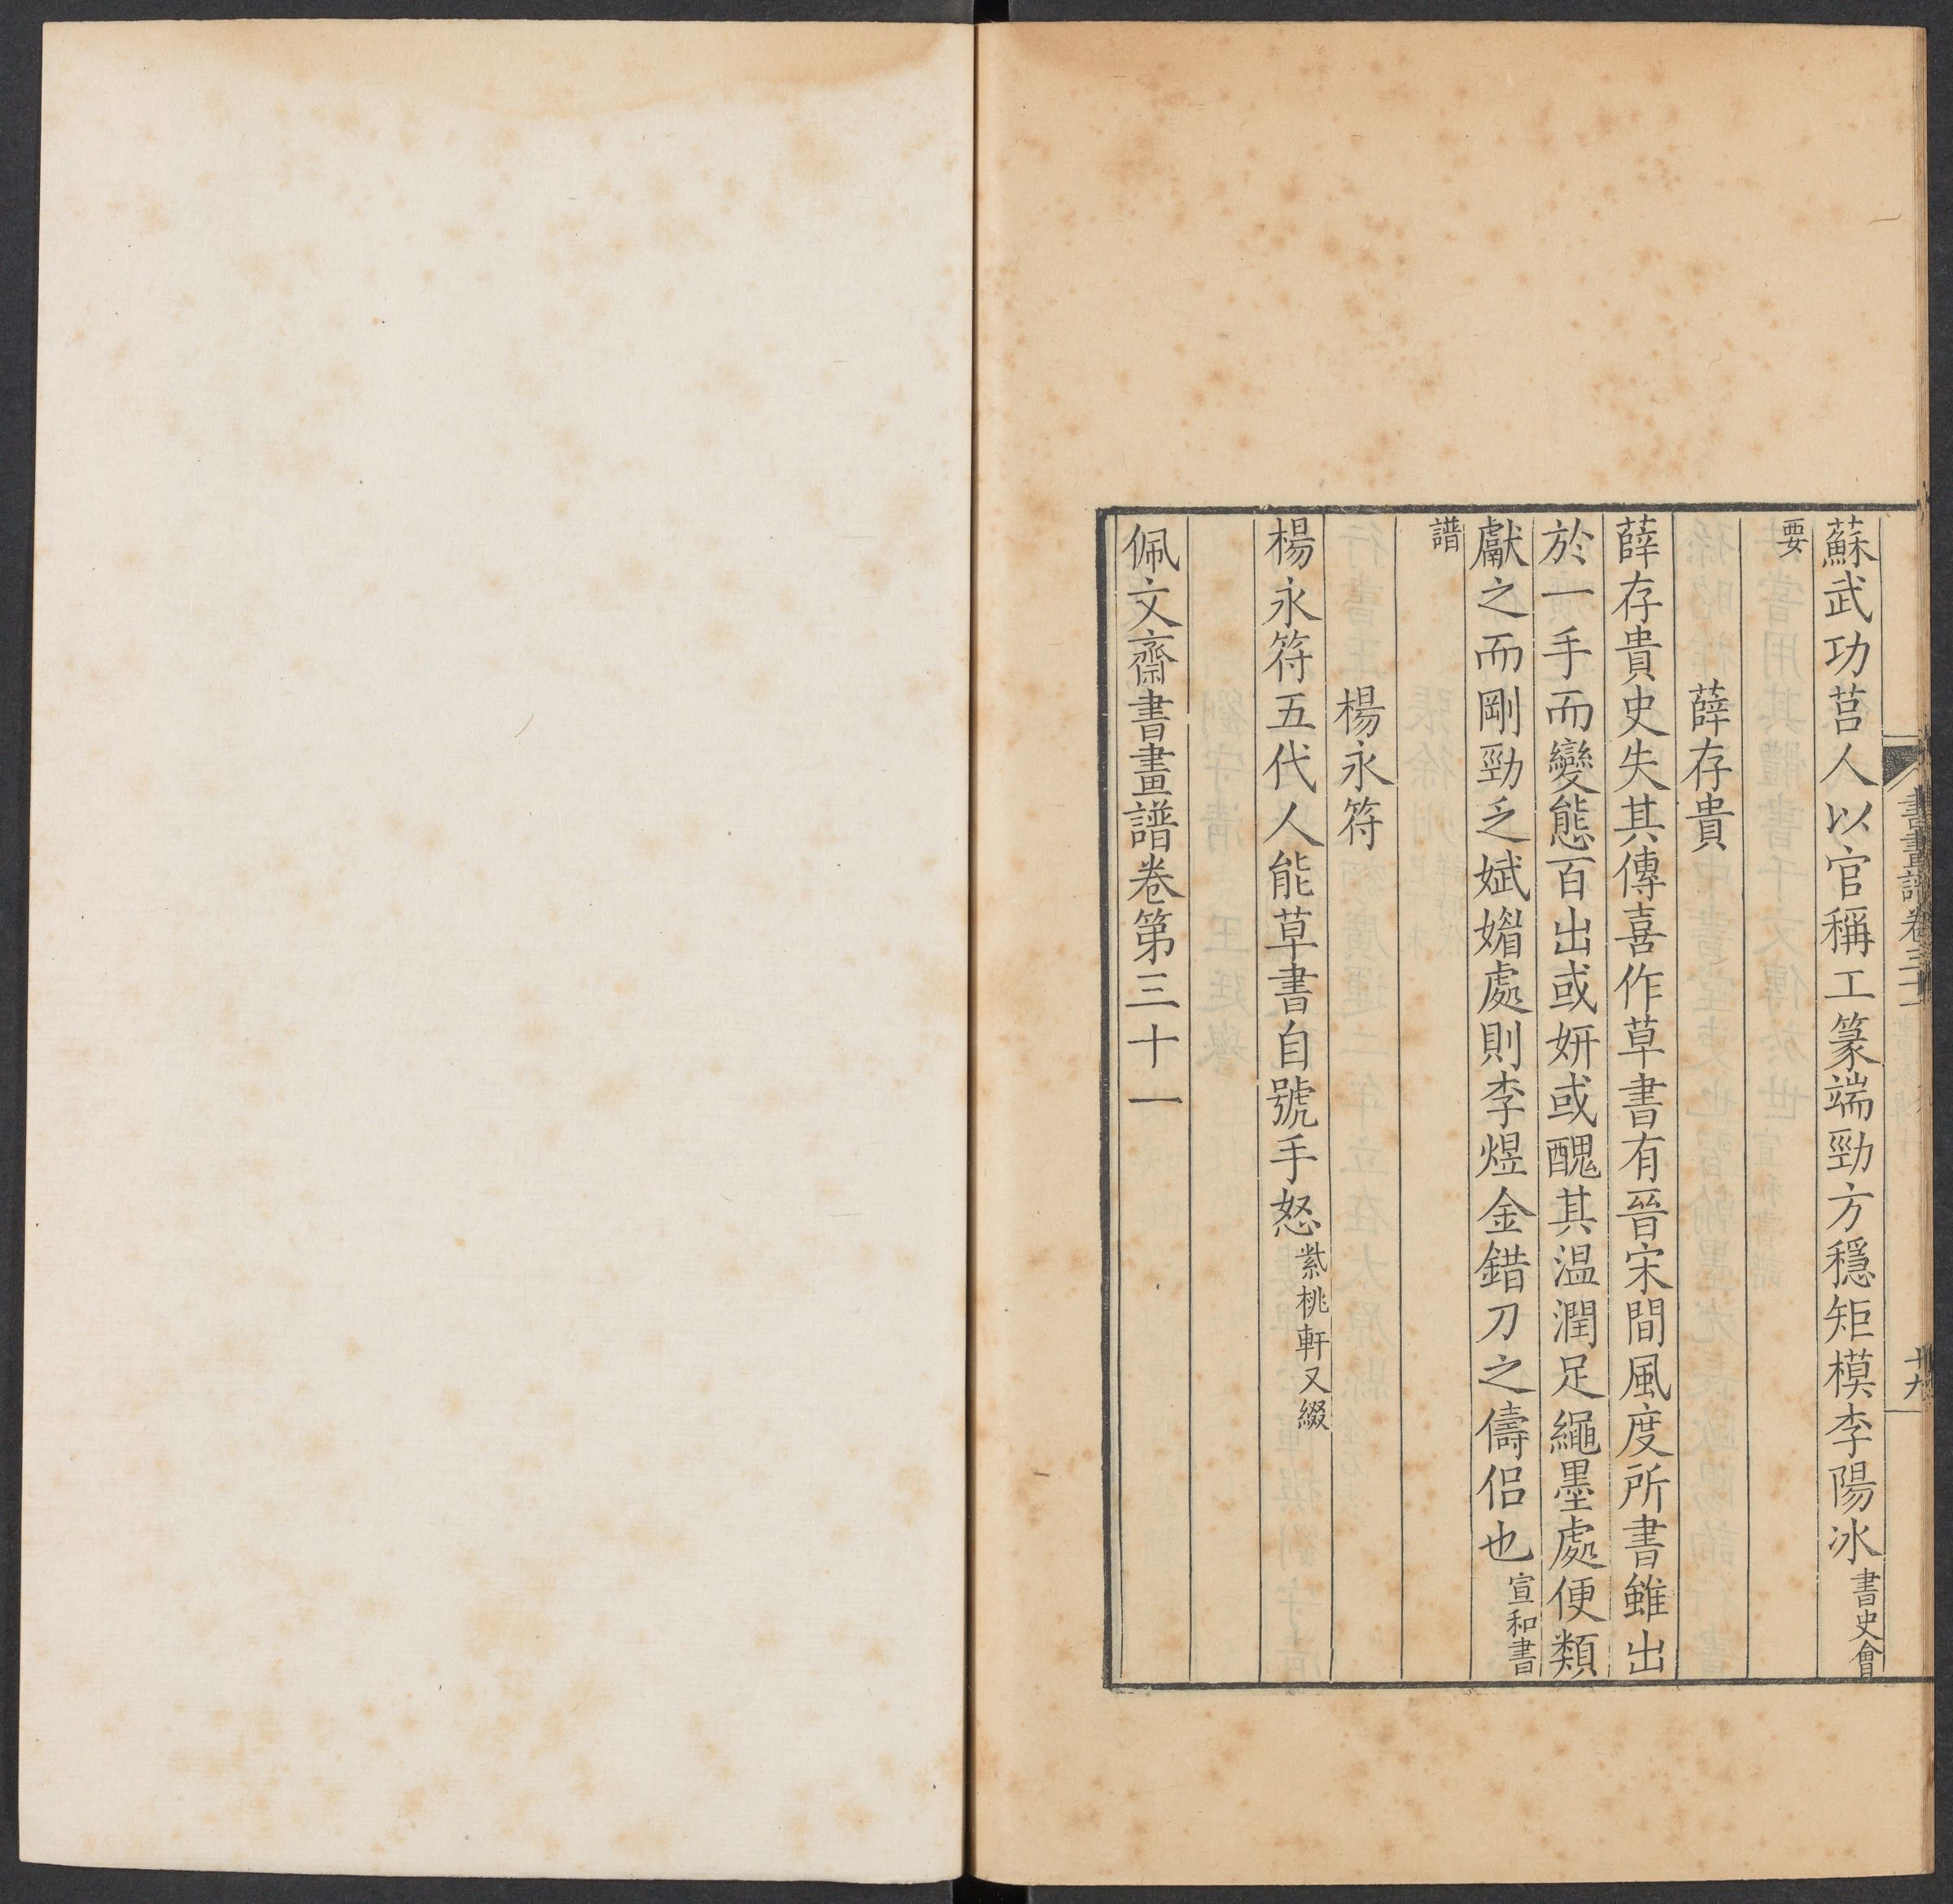 書畫譜卷三十一 十九
蘇武功莒人以官稱工篆端勁方穩矩模李陽冰書史會
要
薛存貴
薛存貴史失其傳喜作草書有晉宋間風度所書雖出
於一手而變態百出或妍或醜其温潤足繩墨處便類
獻之而剛勁乏娬媚處則李煜金錯刀之儔侣也宣和書
譜
楊永符
楊永符五代人能草書自號手怒紫桃軒又綴
佩文齋書畫譜卷第三十一